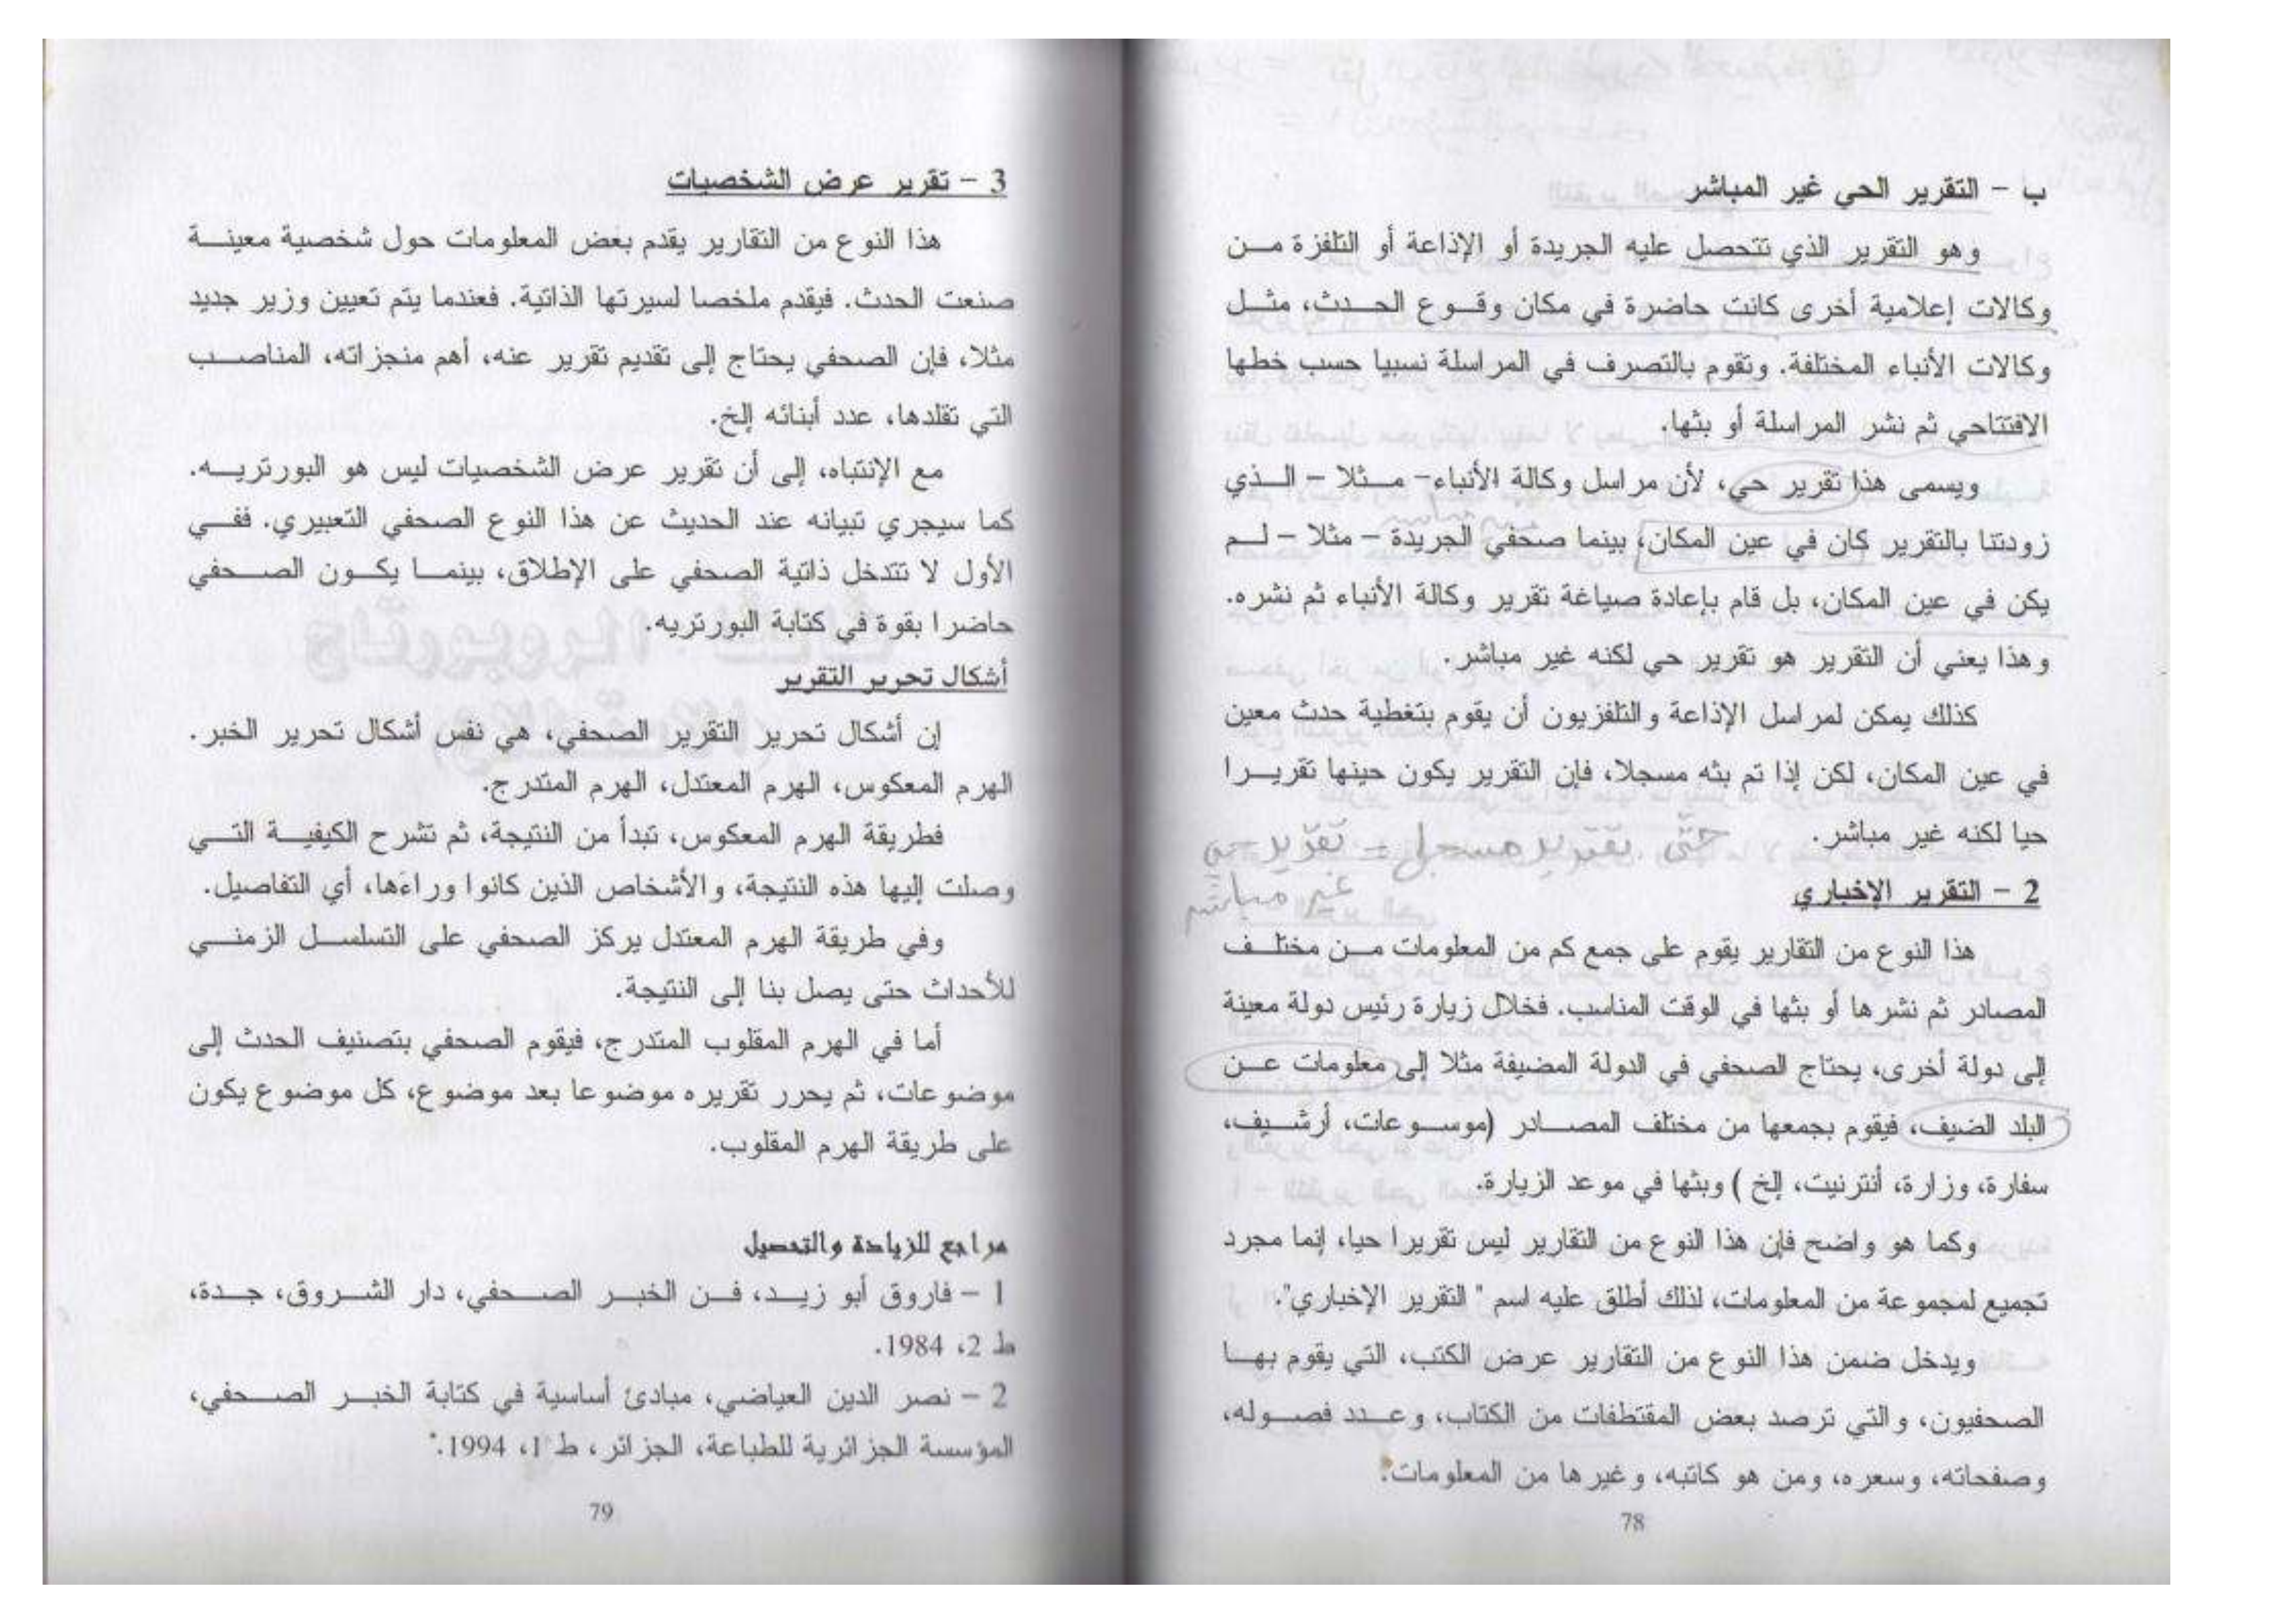 ب – التقرير الحي غير المباشر
وهو التقرير الذي تتحصل عليه الجريدة أو الإذاعة أو التلفزة من
وكالات إعلامية أخرى كانت حاضرة في مكان وقوع الحدث، مثل
وكالات الأنباء المختلفة. وتقوم بالتصرف في المراسلة نسبيا حسب خطها
الافتتاحي ثم نشر المراسلة أو بثها.
ويسمى هذا تقرير حي، لأن مراسل وكالة الأنباء- مثلا – الذي
زودتنا بالتقرير كان في عين المكان، بينما صحفي الجريدة – مثلا – لم
يكن في عين المكان، بل قام بإعادة صياغة تقرير وكالة الأنباء ثم نشره.
وهذا يعني أن التقرير هو تقرير حي لكنه غير مباشر.
كذلك يمكن لمراسل الإذاعة والتلفزيون أن يقوم بتغطية حدث معين
في عين المكان، لكن إذا تم بثه مسجلا، فإن التقرير يكون حينها تقريرا
حيا لكنه غير مباشر.
حتى تقرير مسجل = تقرير حي
غير مباشر
2 – التقرير الإخباري
هذا النوع من التقارير يقوم على جمع كم من المعلومات من مختلف
المصادر ثم نشرها أو بثها في الوقت المناسب. فخلال زيارة رئيس دولة معينة
إلى دولة أخرى، يحتاج الصحفي في الدولة المضيفة مثلا إلى معلومات عن
البلد الضيف، فيقوم بجمعها من مختلف المصادر (موسوعات، أرشيف،
سفارة، وزارة، أنترنيت، إلخ ) وبثها في موعد الزيارة.
وكما هو واضح فإن هذا النوع من التقارير ليس تقريرا حيا، إنما مجرد
تجميع لمجموعة من المعلومات، لذلك أطلق عليه اسم " التقرير الإخباري".
ويدخل ضمن هذا النوع من التقارير عرض الكتب، التي يقوم بها
الصحفيون، والتي ترصد بعض المقتطفات من الكتاب، وعدد فصوله،
وصفحاته، وسعره، ومن هو كاتبه، وغيرها من المعلومات.
78
3 – تقرير عرض الشخصيات
هذا النوع من التقارير يقدم بعض المعلومات حول شخصية معينة
صنعت الحدث. فيقدم ملخصا لسيرتها الذاتية. فعندما يتم تعيين وزير جديد
مثلا، فإن الصحفي يحتاج إلى تقديم تقرير عنه، أهم منجزاته، المناصب
التي تقلدها، عدد أبنائه إلخ.
مع الإنتباه، إلى أن تقرير عرض الشخصيات ليس هو البورتريه.
كما سيجري تبيانه عند الحديث عن هذا النوع الصحفي التعبيري. ففي
الأول لا تتدخل ذاتية الصحفي على الإطلاق، بينما يكون الصحفي
حاضرا بقوة في كتابة البورتريه.
أشكال تحرير التقرير
إن أشكال تحرير التقرير الصحفي، هي نفس أشكال تحرير الخبر.
الهرم المعكوس، الهرم المعتدل، الهرم المتدرج.
فطريقة الهرم المعكوس، تبدأ من النتيجة، ثم تشرح الكيفية التي
وصلت إليها هذه النتيجة، والأشخاص الذين كانوا وراءها، أي التفاصيل.
وفي طريقة الهرم المعتدل يركز الصحفي على التسلسل الزمني
للأحداث حتى يصل بنا إلى النتيجة.
أما في الهرم المقلوب المتدرج، فيقوم الصحفي بتصنيف الحدث إلى
موضوعات، ثم يحرر تقريره موضوعا بعد موضوع، كل موضوع يكون
على طريقة الهرم المقلوب.
مراجع للزيادة والتحصيل
1 – فاروق أبو زيد، فن الخبر الصحفي، دار الشروق، جدة،
ط 2، 1984.
2 – نصر الدين العياضي، مبادئ أساسية في كتابة الخبر الصحفي،
المؤسسة الجزائرية للطباعة، الجزائر، ط 1، 1994.
79